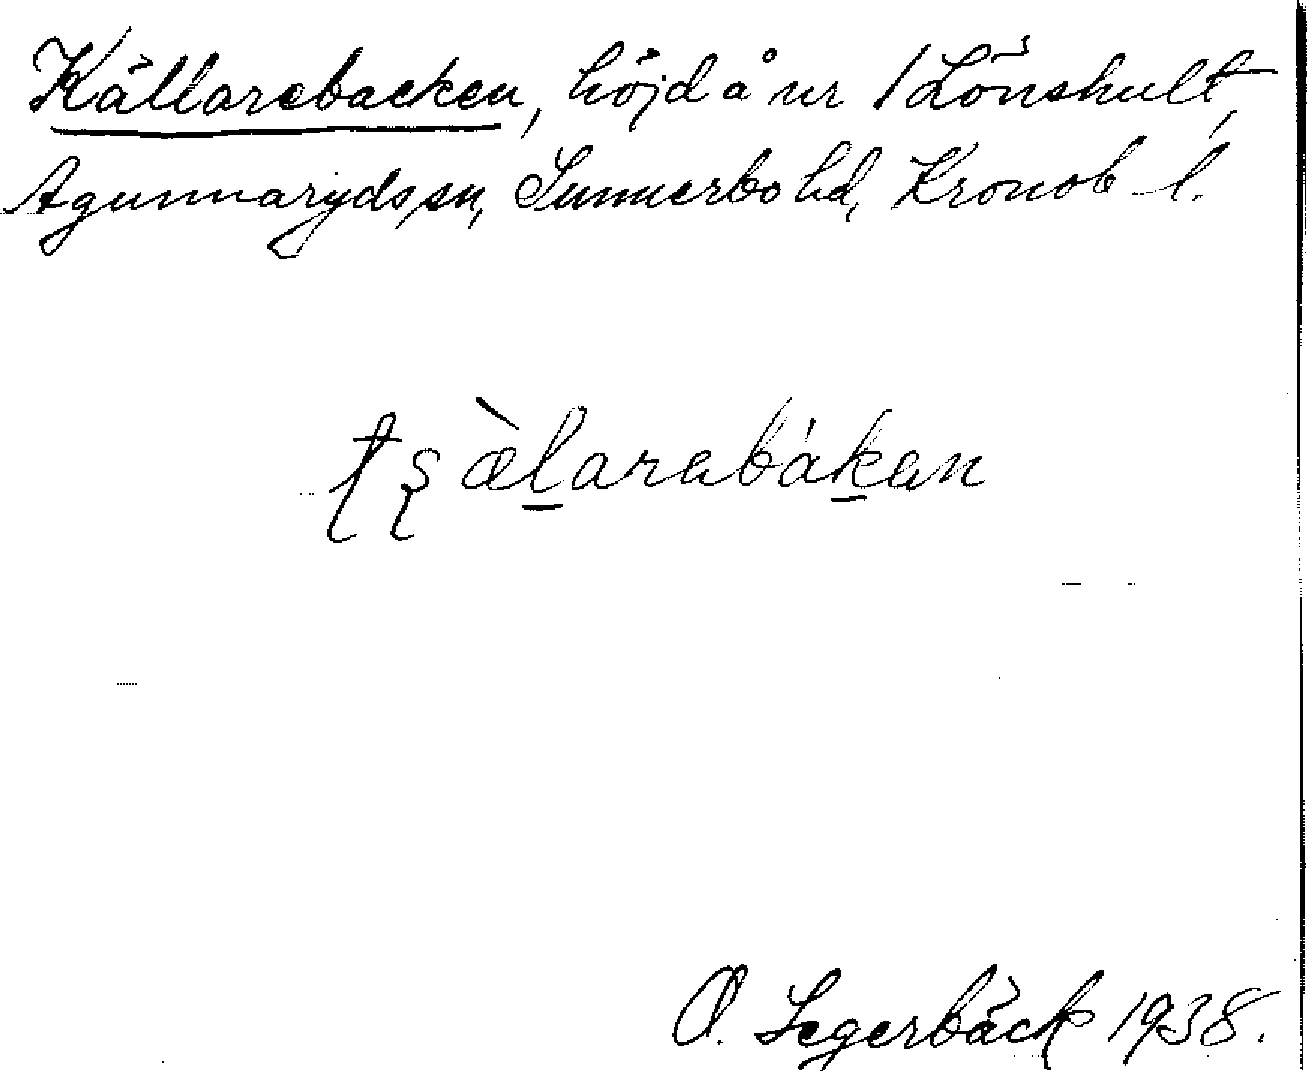 Källarebacken, höjd å nr 1 Lönshult,
Agunnarydssn, Sunnerbo hd, Kronob l.
tʂæ̀l̠arabák̠an
O. Segerbäck 1938.